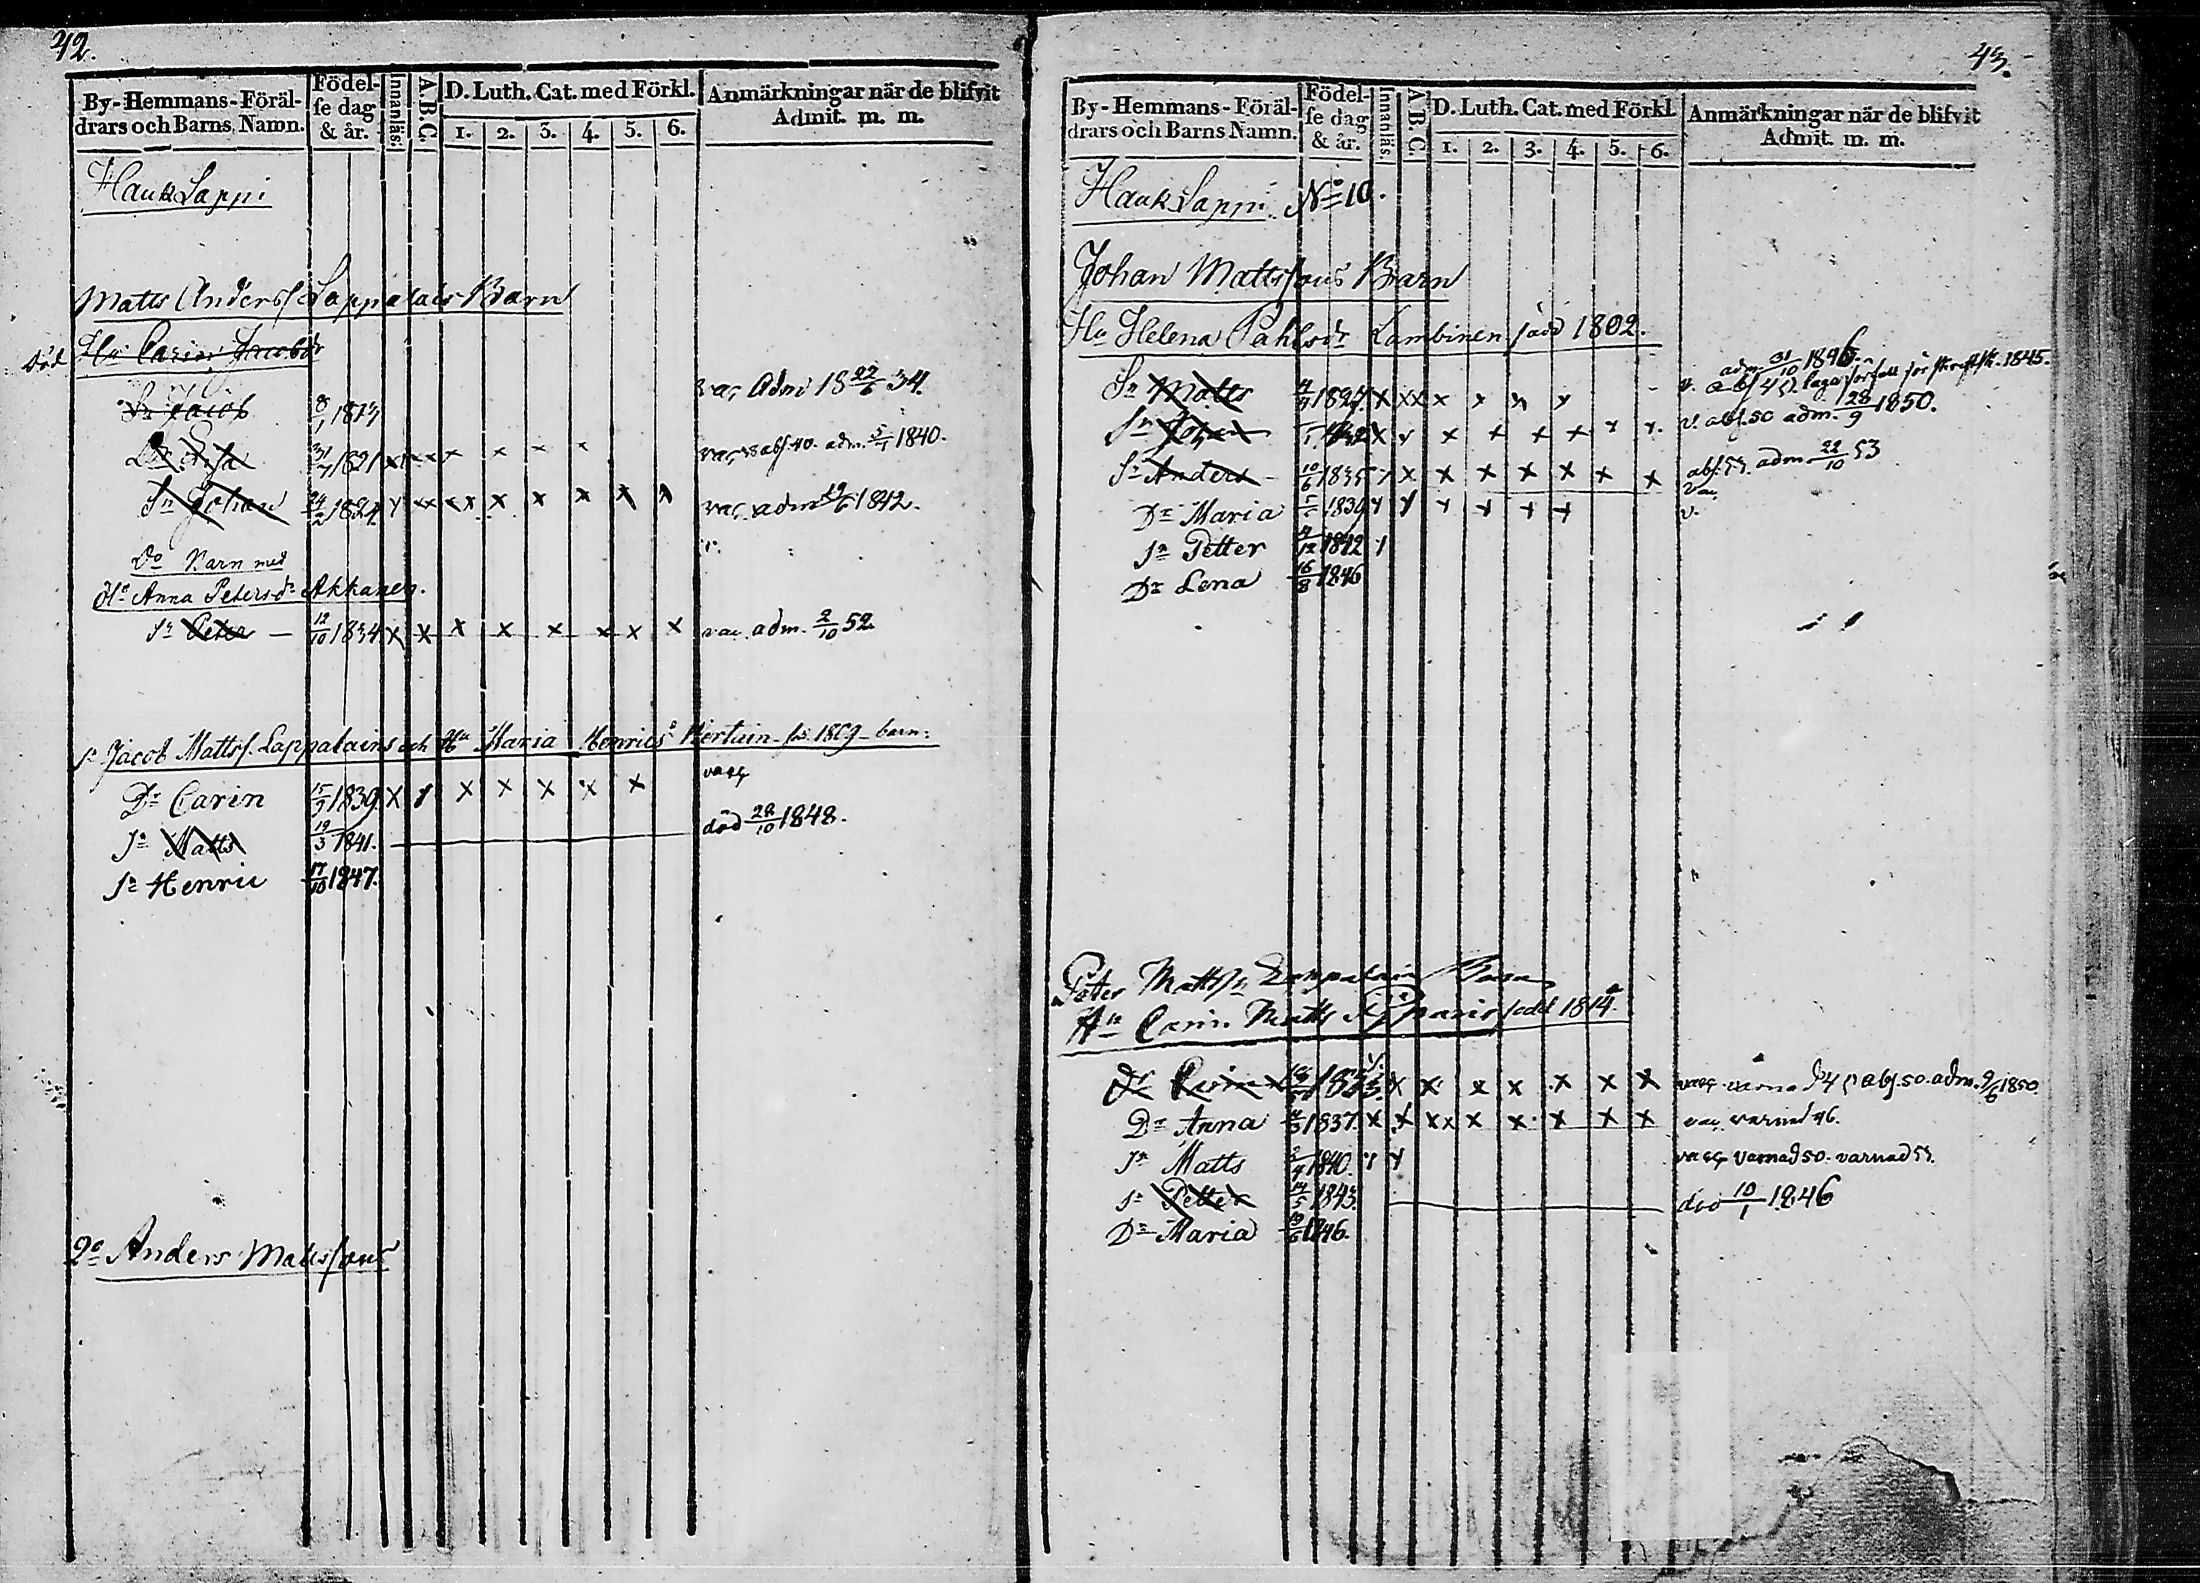 42.
By-Hemmans-Föräl-
drars och Barns Namn.
Födel-
se dag
& år.
Innanläs.
A.B.C.
D. Luth. Cat. med Förkl.
1. 2. 3. 4. 5. 6.
Anmärkningar när de blifvit
Admit. m. m.
Hauk Lappi
Matts Anderss Lappalais Barn
död Hu Carin Jacobsdr
Sn Jacob 8/1 1817 vac Adm 18 22/6 34.
Dr 31/7 1821 x x x x x vac abs. 40. adm. 5/1 1840.
Sn Johan 24/2 1824 x x x x x x x x vac adm 19/6 1842.
v.
Do Barn med
Hu Anna Petersdr Akkanen.
Sn Peter — 12/10 1834 x x x x x x x x vac. adm. 2/10 52.
Sn Jacob Mattss. Lappalains och Hu Maria Henricsdr 1809 barn:
Dr Carin 15/9 1839 x x x x x x x vacc
Sn Matts 19/3 1841. död 28/10 1848.
Sn Henric 17/10 1847.
2o Anders Mattssons
43.
By-Hemmans-Föräl-
drars och Barns Namn.
Födel-
se dag
& år.
Innanläs.
A.B.C.
D. Luth. Cat. med Förkl.
1. 2. 3. 4. 5. 6.
Anmärkningar när de blifvit
Admit. m. m.
Hauk Lappi No 10.
Johan Mattssons Barn
Hu Helena Påhlsdr Lambinen född 1802.
adm. 31/10 1846.
Sn Matts 1827. x xx x x x x v. abs 45. laga förfall för skriftsk. 1845.
Sn Johan x x x x x x x x v. abs. 50 adm. 28/9 1850.
Sn Anders 10/6 1835 x x x x x x x x abs. 53. adm. 22/10 53
vac
Dr Maria 1839 x x x x x x v.
Sn Petter 4/12 1842 x
Dr Lena 16/8 1846
Peter Mattss Lappalain Barn
Hu Carin Matts född 1814.
Dr Carin x x x x x x x x vacc varnad 45 abs. 50. adm. 9/6 1850.
Dr Anna 1837. x x xx x x x x x vac. varnad 46.
Sn Matts 2/4 1840. x x vacc varnad 50. varnad 53.
Sn Petter 14/5 1843. död 10/1 1846
Dr Maria 19/6 1846.